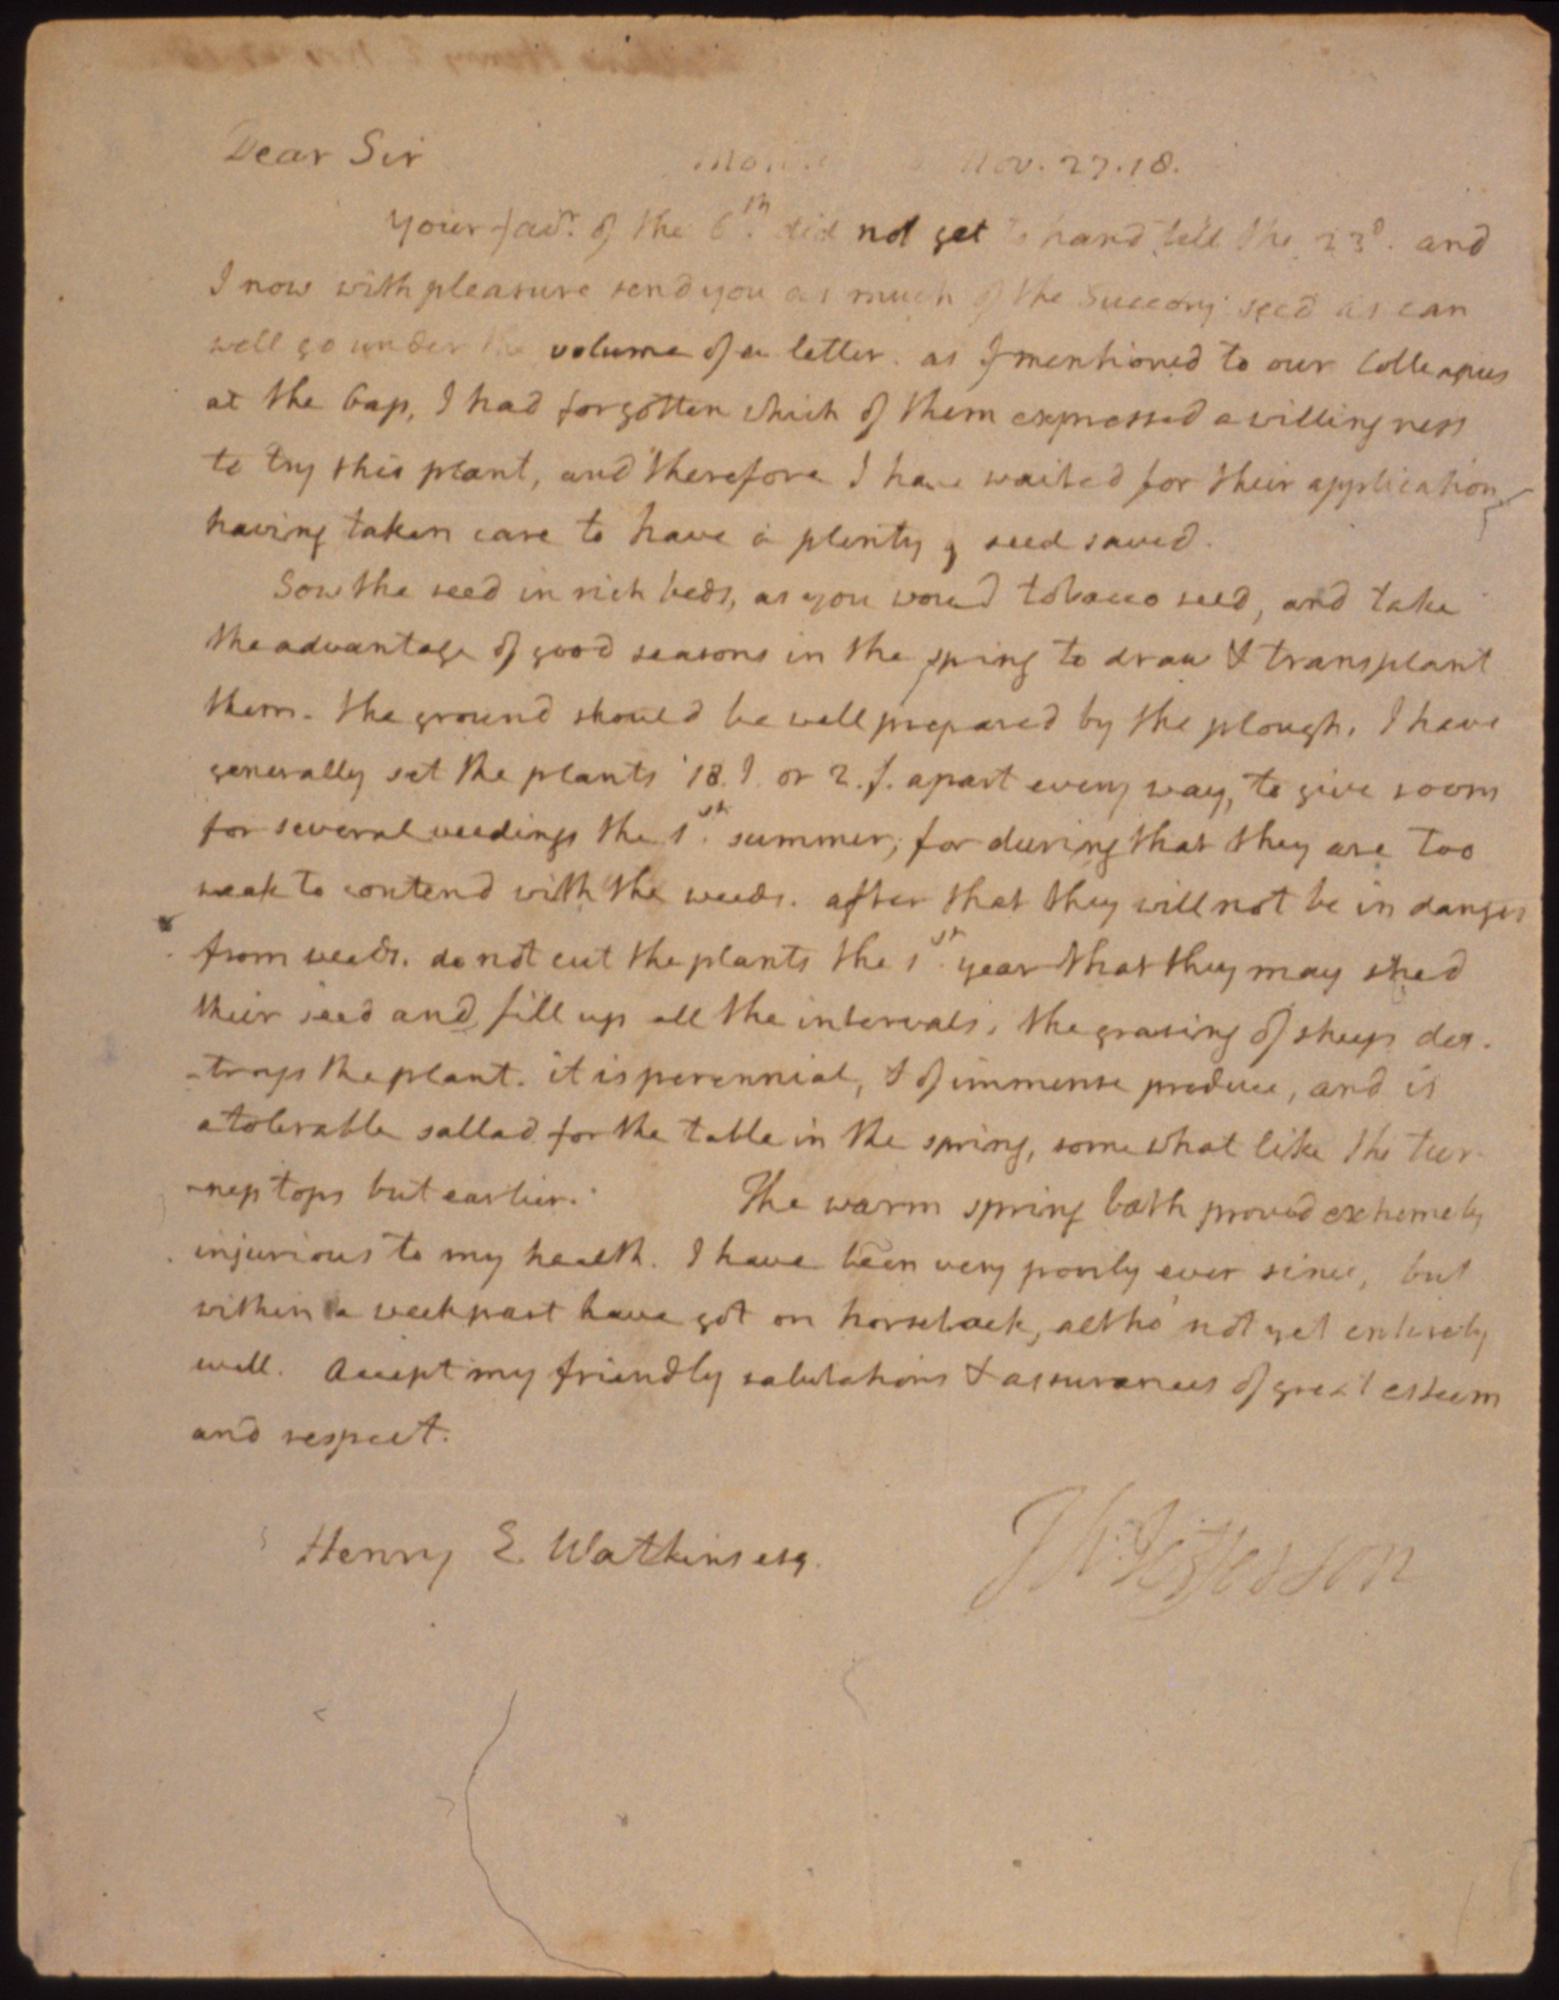 Dear Sir Nov. 27. 18.
Your favr. of the 6th. did not get to hand till the 23d. and
I now with pleasure send you as much of the Succory seed as can
well go under the volume of a letter. as I mentioned to our Colleagues
at the Gap, I had forgotten which of them expressed a willingness
to try this plant, and therefore I have waited for their application
having taken care to have a plenty of seed saved.
Sow the seed in rich beds, as you would tobacco seed, and take
the advantage of good seasons in the spring to draw & transplant
them. the ground should be well prepared by the plough. I have
generally set the plants 18. I. or 2. f. apart every way, to give room
for several weedings the 1st. summer; for during that they are too
weak to contend with the weeds. after that they will not be in danger
from weeds. do not cut the plants the 1st. year that they may shed
their seed and fill up all the intervals. the grasing of sheep des-
-troys the plant. it is perennial, & of immense produce, and is
a tolerable sallad for the table in the spring, somewhat like the tur-
-nep tops but earlier. The warm spring bath proved extremely
injurious to my health. I have been very poorly ever since, but
within a week past have got on horseback, altho' not yet entirely
well. Accept my friendly salutations & assurances of great esteem
and respect.
Henry E. Watkins esq. Th: Jefferson